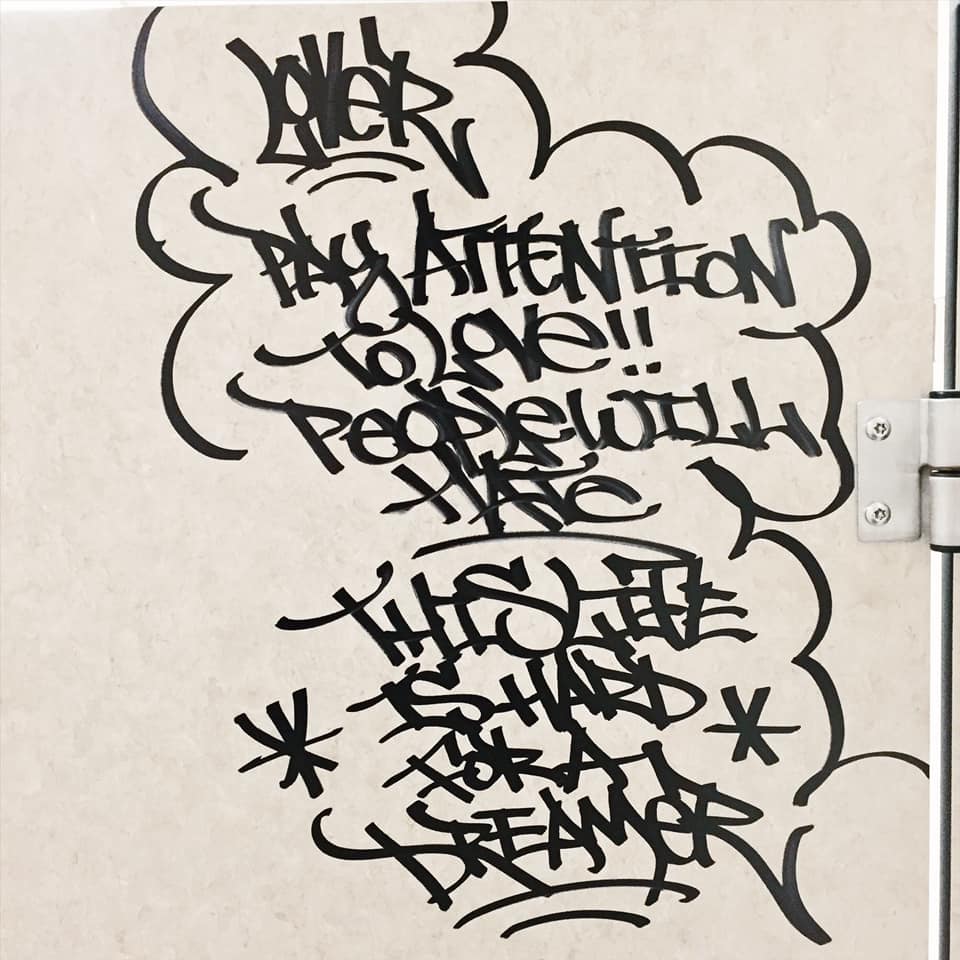 LOVER
PAY ATTENTION
TO LOVE!!
PEOPLE WILL
HATE
THIS LIFE
IS HARD
FOR A
DREAMER